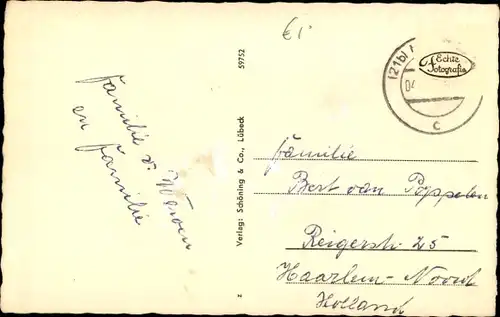 €1
59752
(21b)
Echte
Fotografie
c
familie v.
en familie
Verlag: Schöning & Co., Lübeck
z
familie
Bert van Poppelen
Reigerstr. 25
Haarlem-Noord
Holland